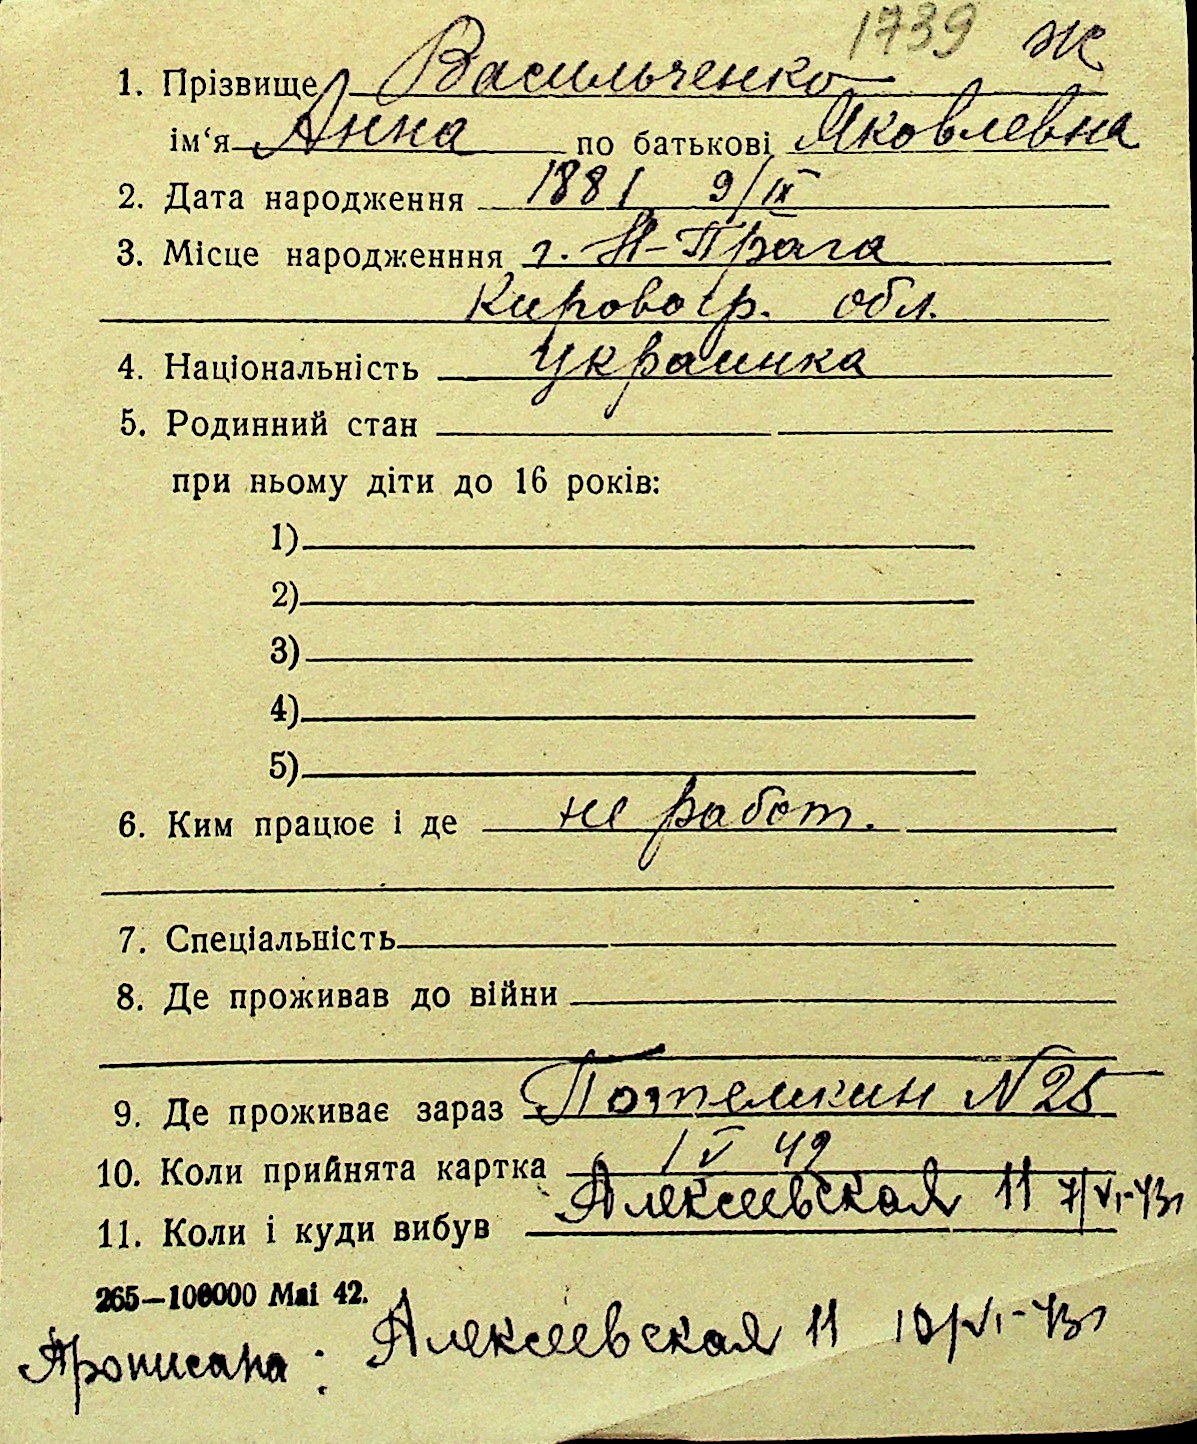 1739 Ж
1. Прізвище Васильченко
ім‘я Анна по батькові Яковлевна
2. Дата народження 1881 9/IX
3. Місце народженння г. Н-Прага
Кировогр. обл.
4. Національність Украинка
5. Родинний стан
при ньому діти до 16 років:
1)
2)
3)
4)
5)
6. Ким працює і де не работ.
7. Спеціальність
8. Де проживав до війни
9. Де проживає зараз Потемкин N 25
10. Коли прийнята картка 1 V 42
11. Коли і куди вибув Алексеевская 11 7/VI-43г
265—100000 Mai 42.
Прописана: Алексеевская 11 10/VI-43г